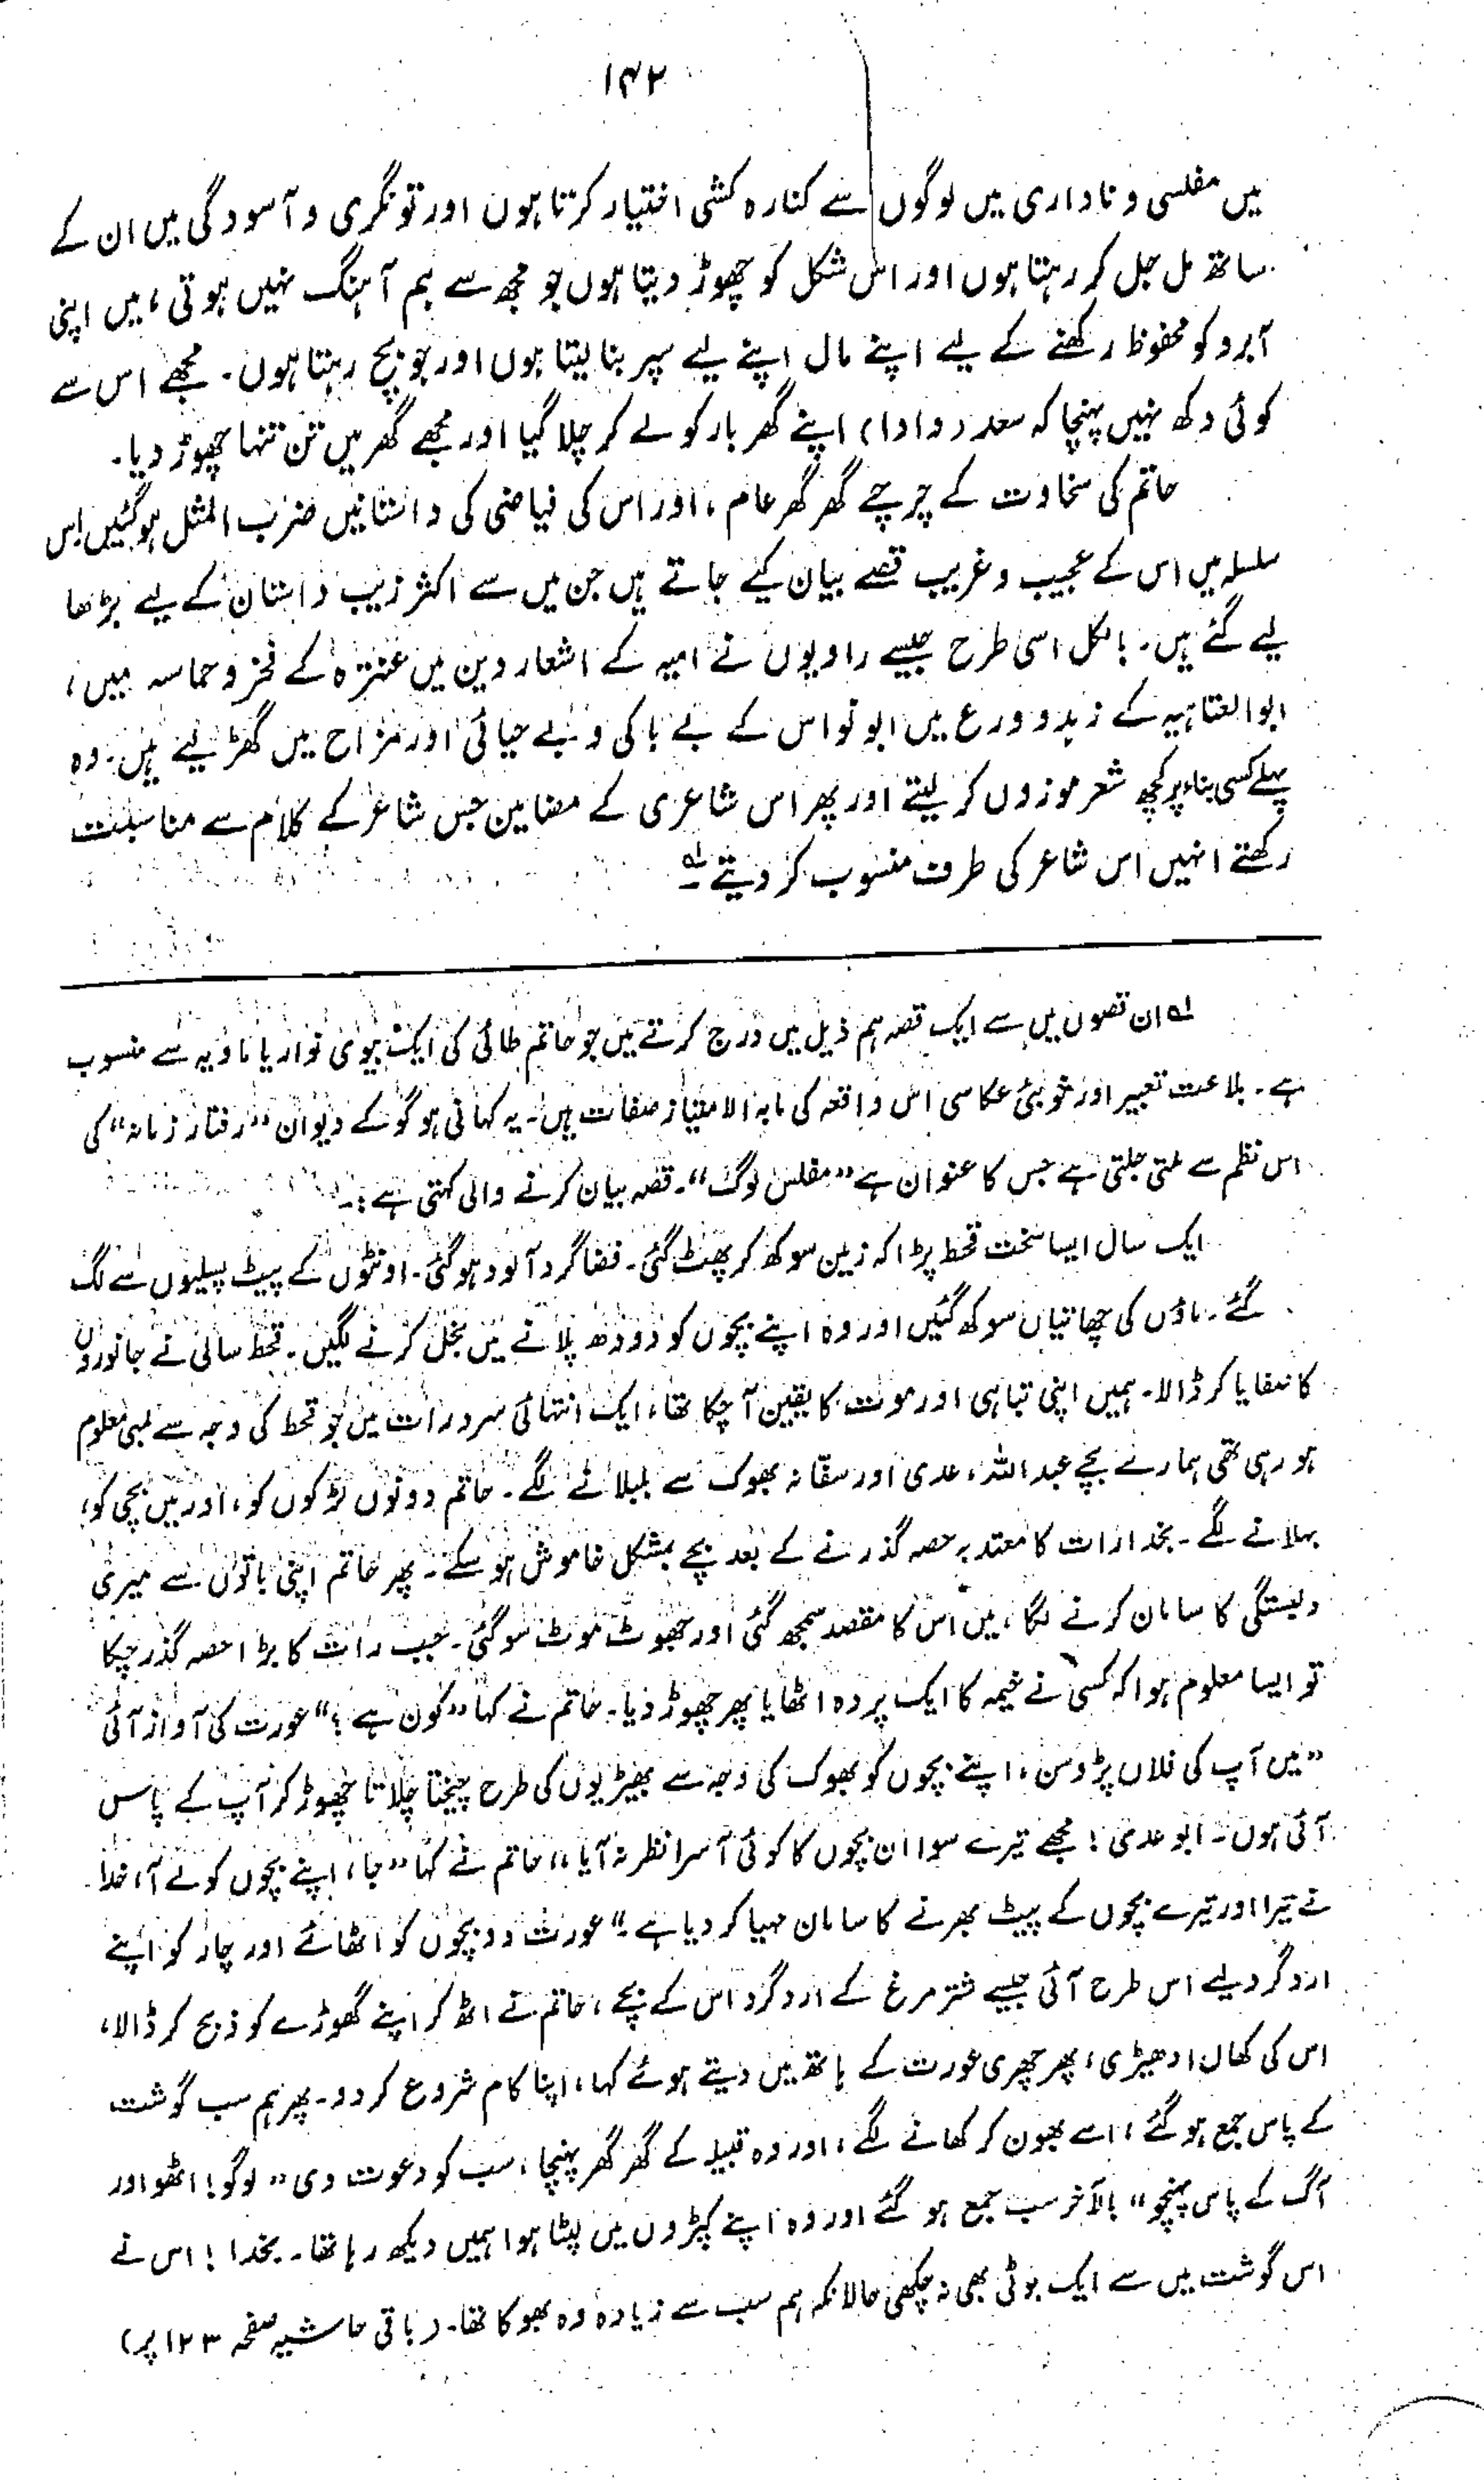 ۱۴۲
میں مفلسی و ناداری میں لوگوں سے کنارہ کشی اختیار کرتا ہوں اور تونگری و آسودگی میں ان کے
ساتھ مل جل کر رہتا ہوں اور اس شکل کو چھوڑ دیتا ہوں جو مجھ سے ہم آہنگ نہیں ہوتی، میں اپنی
آبرو کو محفوظ رکھنے کے لیے اپنے مال اپنے لیے سپر بنا لیتا ہوں اور جو بچ رہتا ہوں۔ مجھے اس سے
کوئی دکھ نہیں پہنچا کہ سعد (دادا) اپنے گھر بار کو لے کر چلا گیا اور مجھے گھر میں تن تنہا چھوڑ دیا۔
حاتم کی سخاوت کے چرچے گھر گھر عام، اور اس کی فیاضی کی داستانیں ضرب المثل ہوگئیں اس
سلسلہ میں اس کے عجیب و غریب قصے بیان کیے جاتے ہیں جن میں سے اکثر زیب داستان کے لیے بڑھا
لیے گئے ہیں۔ بالکل اسی طرح جیسے راویوں نے امیہ کے اشعار دین میں عنترہ کے فخر و حماسہ میں،
ابوالعتاہیہ کے زہد و ورع میں ابو نواس کے بے باکی و بے حیائی اور مزاح میں گھڑ لیے ہیں۔ وہ
پہلے کسی بناء پر کچھ شعر موزوں کر لیتے اور پھر اس شاعری کے مضامین جس شاعر کے کلام سے مناسبت
رکھتے انہیں اس شاعر کی طرف منسوب کر دیتے۔ لہ
لہ ان قصوں میں سے ایک قصہ ہم ذیل میں درج کرتے ہیں جو حاتم طائی کی ایک بیوی نوار یا ماویہ سے منسوب
ہے۔ بلاغت تعبیر اور خوبئ عکاسی اس واقعہ کی مابہ الامتیاز صفات ہیں۔ یہ کہانی ہوگو کے دیوان ”رفتار زمانہ“ کی
اس نظم سے ملتی جلتی ہے جس کا عنوان ہے ”مفلس لوگ“۔ قصہ بیان کرنے والی کہتی ہے :۔
ایک سال ایسا سخت قحط پڑا کہ زمین سوکھ کر پھٹ گئی۔ فضا گرد آلود ہوگئی۔ اونٹوں کے پیٹ پسلیوں سے لگ
گئے۔ ماؤں کی چھاتیاں سوکھ گئیں اور وہ اپنے بچوں کو دودھ پلانے میں بخل کرنے لگیں۔ قحط سالی نے جانوروں
کا صفایا کر ڈالا۔ ہمیں اپنی تباہی اور موت کا یقین آ چکا تھا، ایک انتہائی سرد رات میں جو قحط کی وجہ سے لمبی معلوم
ہو رہی تھی ہمارے بچے عبداللہ، عدی اور سفانہ بھوک سے بلبلانے لگے۔ حاتم دونوں لڑکوں کو، اور میں بچی کو،
بہلانے لگے۔ بخدا رات کا معتد بہ حصہ گذرنے کے بعد بچے بمشکل خاموش ہو سکے۔ پھر حاتم اپنی باتوں سے میری
دلبستگی کا سامان کرنے لگا، میں اس کا مقصد سمجھ گئی اور جھوٹ موٹ سو گئی۔ جب رات کا بڑا حصہ گذر چکا
تو ایسا معلوم ہوا کہ کسی نے خیمہ کا ایک پردہ اٹھایا پھر چھوڑ دیا۔ حاتم نے کہا ”کون ہے؟“ عورت کی آواز آئی
”میں آپ کی فلاں پڑوسن، اپنے بچوں کو بھوک کی وجہ سے بھیڑیوں کی طرح چیختا چلاتا چھوڑ کر آپ کے پاس
آئی ہوں۔ ابو عدی! مجھے تیرے سوا ان بچوں کا کوئی آسرا نظر نہ آیا“ حاتم نے کہا ”جا، اپنے بچوں کو لے آ، خدا
نے تیرا اور تیرے بچوں کے پیٹ بھرنے کا سامان مہیا کر دیا ہے۔“ عورت دو بچوں کو اٹھائے اور چار کو اپنے
ارد گرد لیے اس طرح آئی جیسے شتر مرغ کے ارد گرد اس کے بچے، حاتم نے اٹھ کر اپنے گھوڑے کو ذبح کر ڈالا،
اس کی کھال ادھیڑی، پھر چھری عورت کے ہاتھ میں دیتے ہوئے کہا، اپنا کام شروع کر دو۔ پھر ہم سب گوشت
کے پاس جمع ہو گئے، اسے بھون کر کھانے لگے، اور وہ قبیلہ کے گھر گھر پہنچا، سب کو دعوت دی ”لوگو! اٹھو اور
آگ کے پاس پہنچو“ بالآخر سب جمع ہو گئے اور وہ اپنے کپڑوں میں لپٹا ہوا ہمیں دیکھ رہا تھا۔ بخدا! اس نے
اس گوشت میں سے ایک بوٹی بھی نہ چکھی حالانکہ ہم سب سے زیادہ وہ بھوکا تھا۔ (باقی حاشیہ صفحہ ۱۲۳ پر)